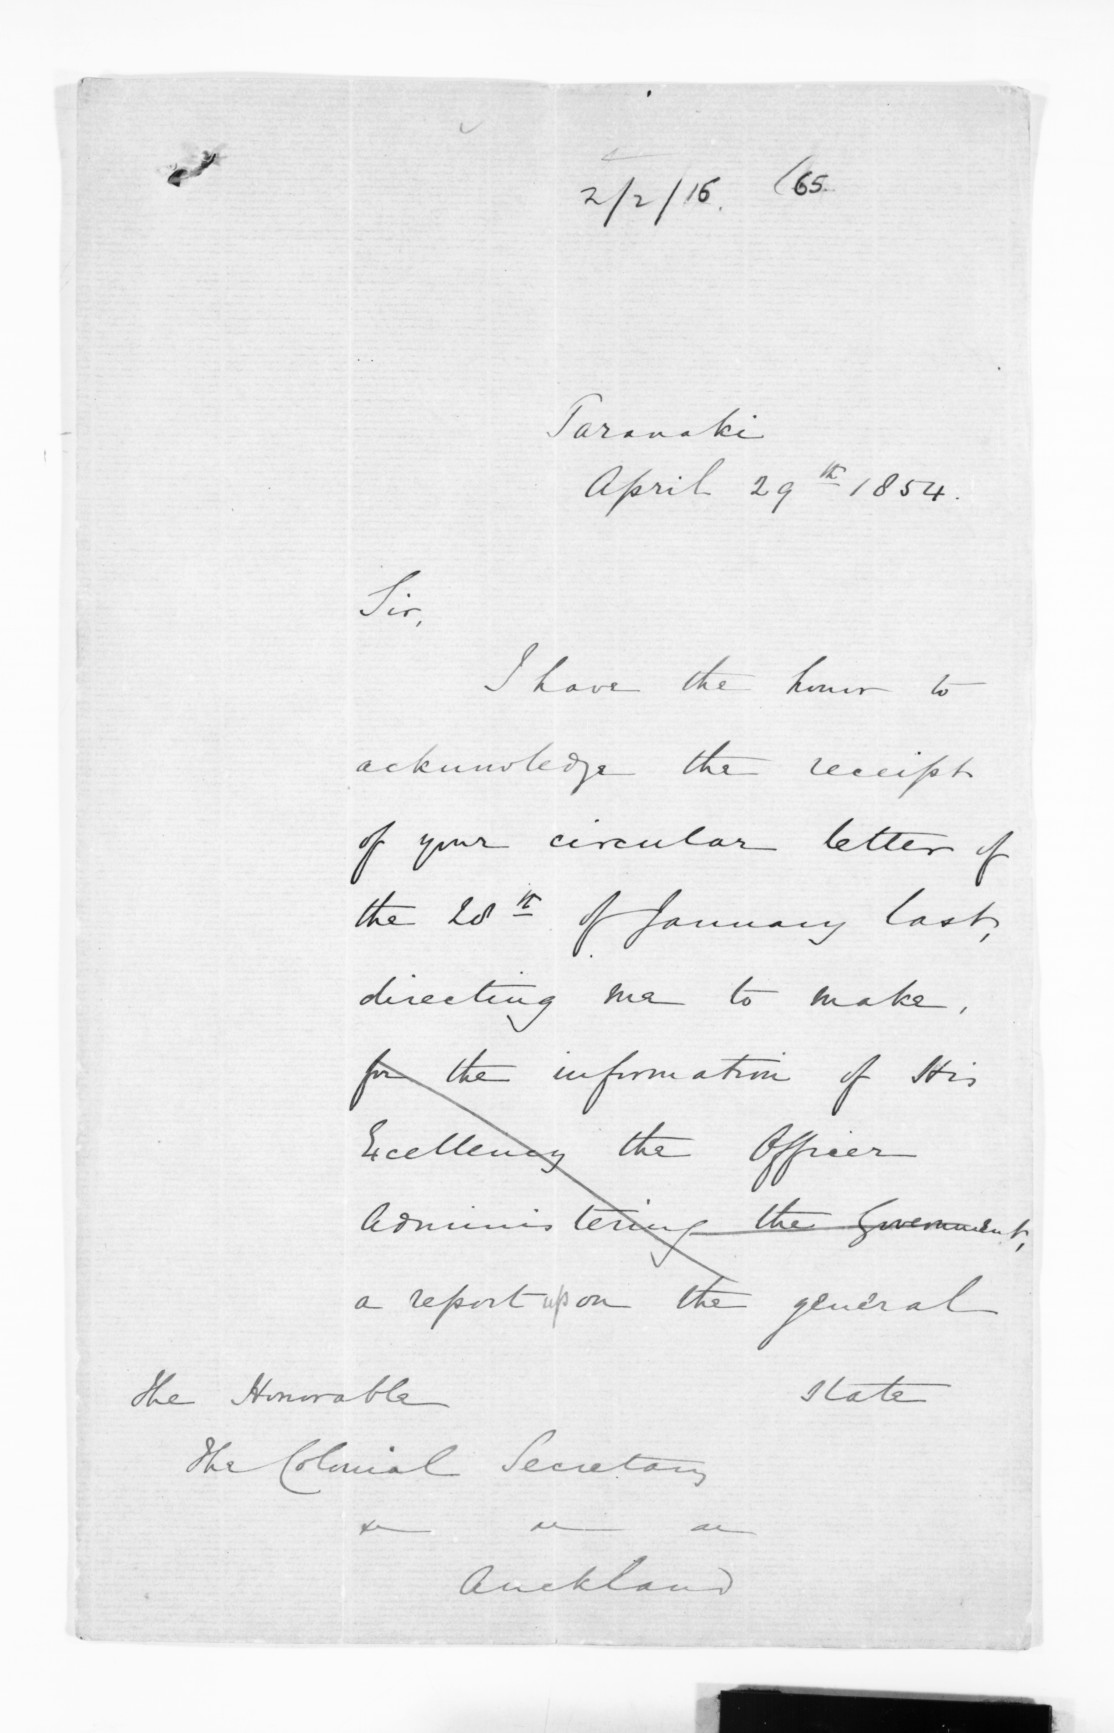 2/2/16. (65.
Taranaki
April 29th 1854.
Sir,
I have the honor to
acknowledge the receipt
of your circular letter of
the 28th of January last,
directing me to make,
for the information of His
Excellency the Officer
Administering the Government,
a report upon the general
The Honorable state
The Colonial Secretary
&c &c &c
Auckland